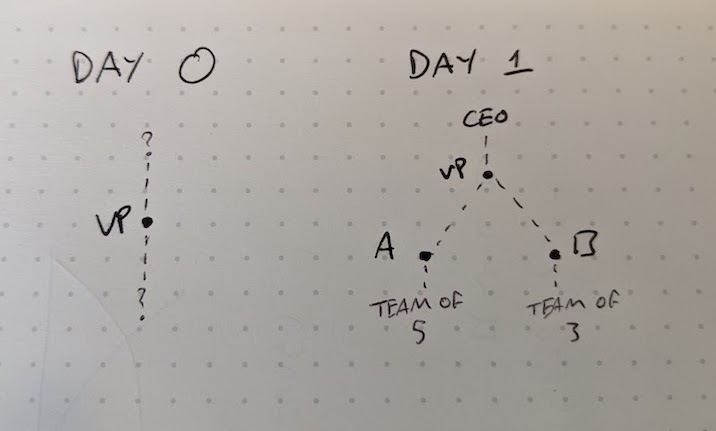 DAY 0
?
VP
?
DAY 1
CEO
VP
A
B
TEAM OF
5
TEAM OF
3